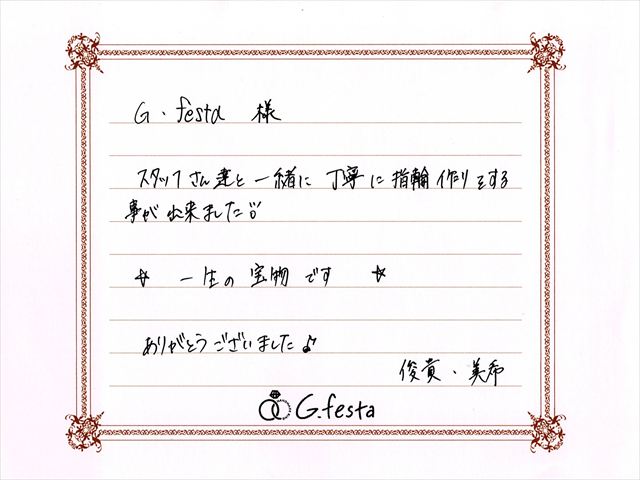 G.festa 様
スタッフさん達と一緒に丁寧に指輪作りをする
事が出来ました
☆ 一生の宝物です ☆
ありがとうございました♪
俊貴・美希
G.festa